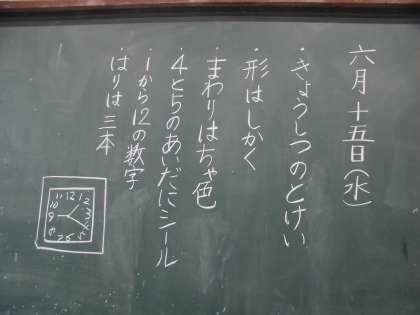 六月十五日(水)
・きょうしつのとけい
・形はしかく
・まわりはちゃ色
・4と5のあいだにシール
・1から12の数字
・はりは三本
11 12 1
10 2
9 3
8 4
7 6 5